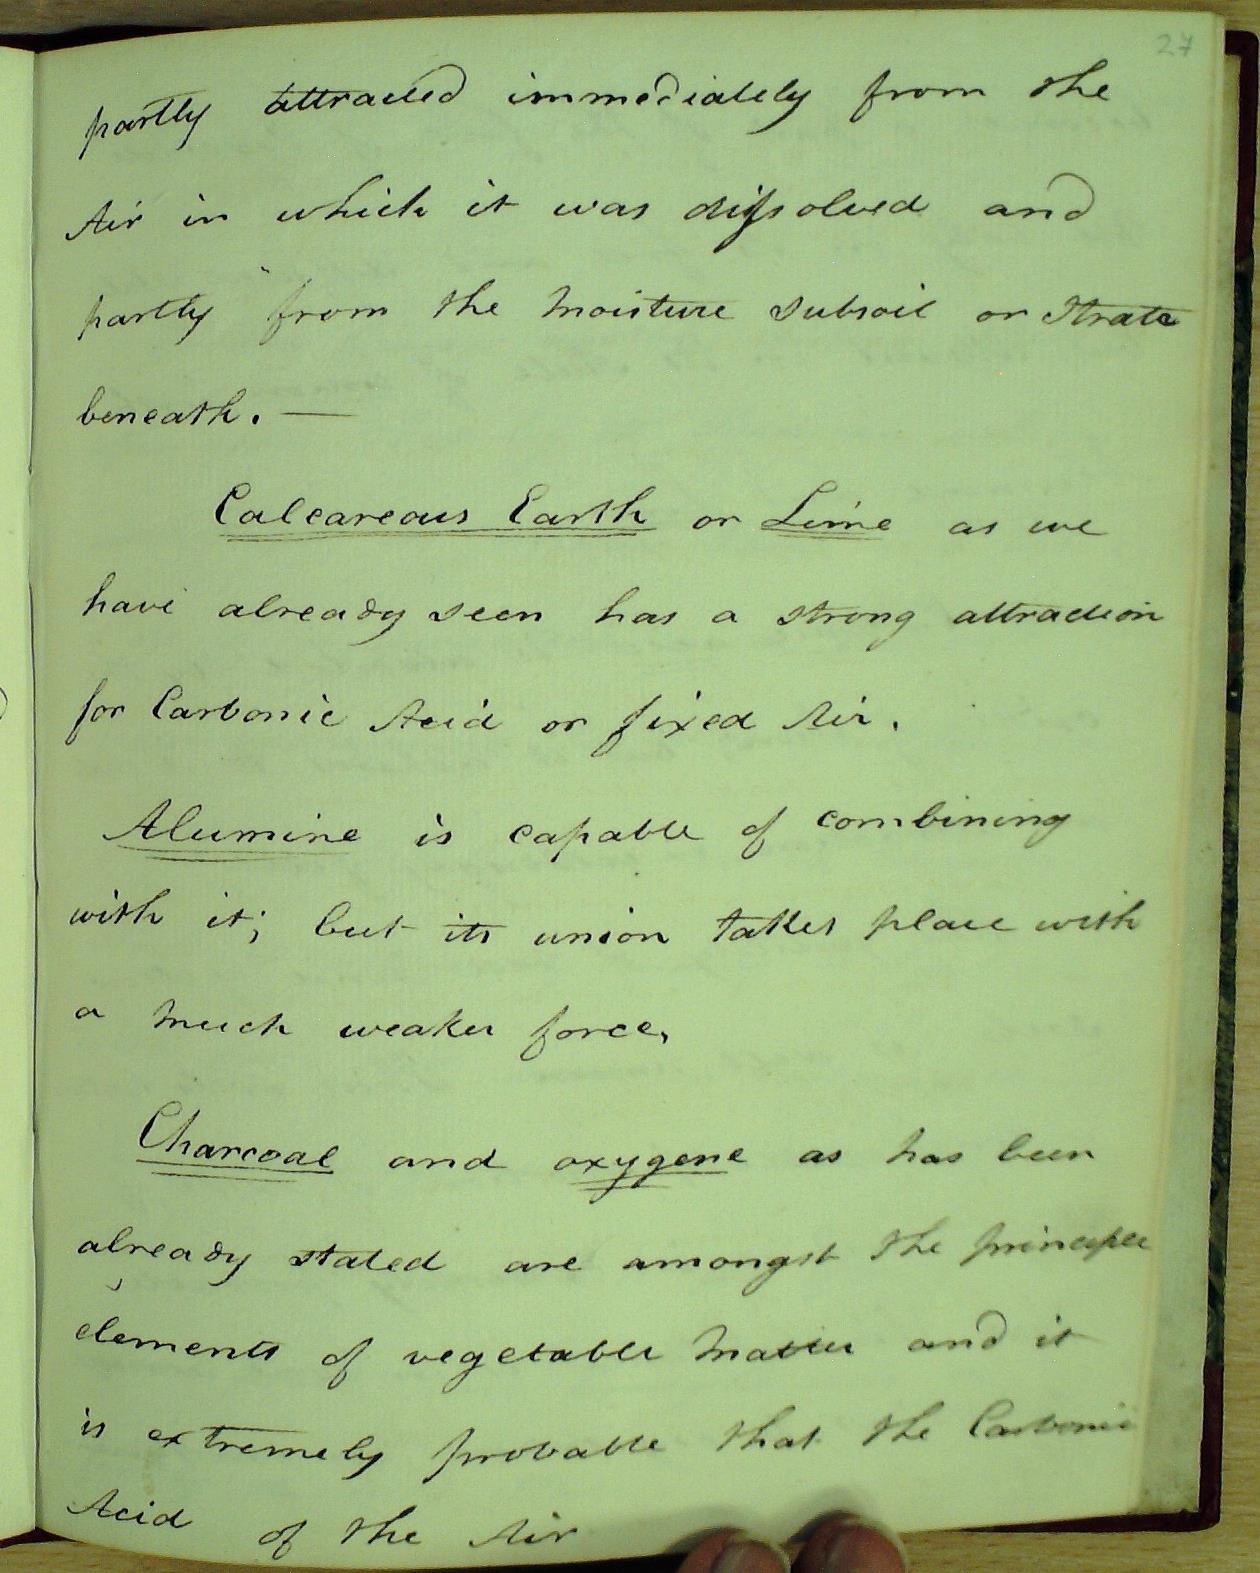 27
partly attracted immediately from the
Air in which it was dissolved and
partly from the moisture subsoil or Strata
beneath. —
Calcareous Earth or Lime as we
have already seen has a strong attraction
for Carbonic Acid or fixed Air.
Alumine is capable of combining
with it; but its union takes place with
a much weaker force,
Charcoal and oxygene as has been
already stated are amongst the principle
elements of vegetable matter and it
is extremely probable that the Carbonic
Acid of the Air